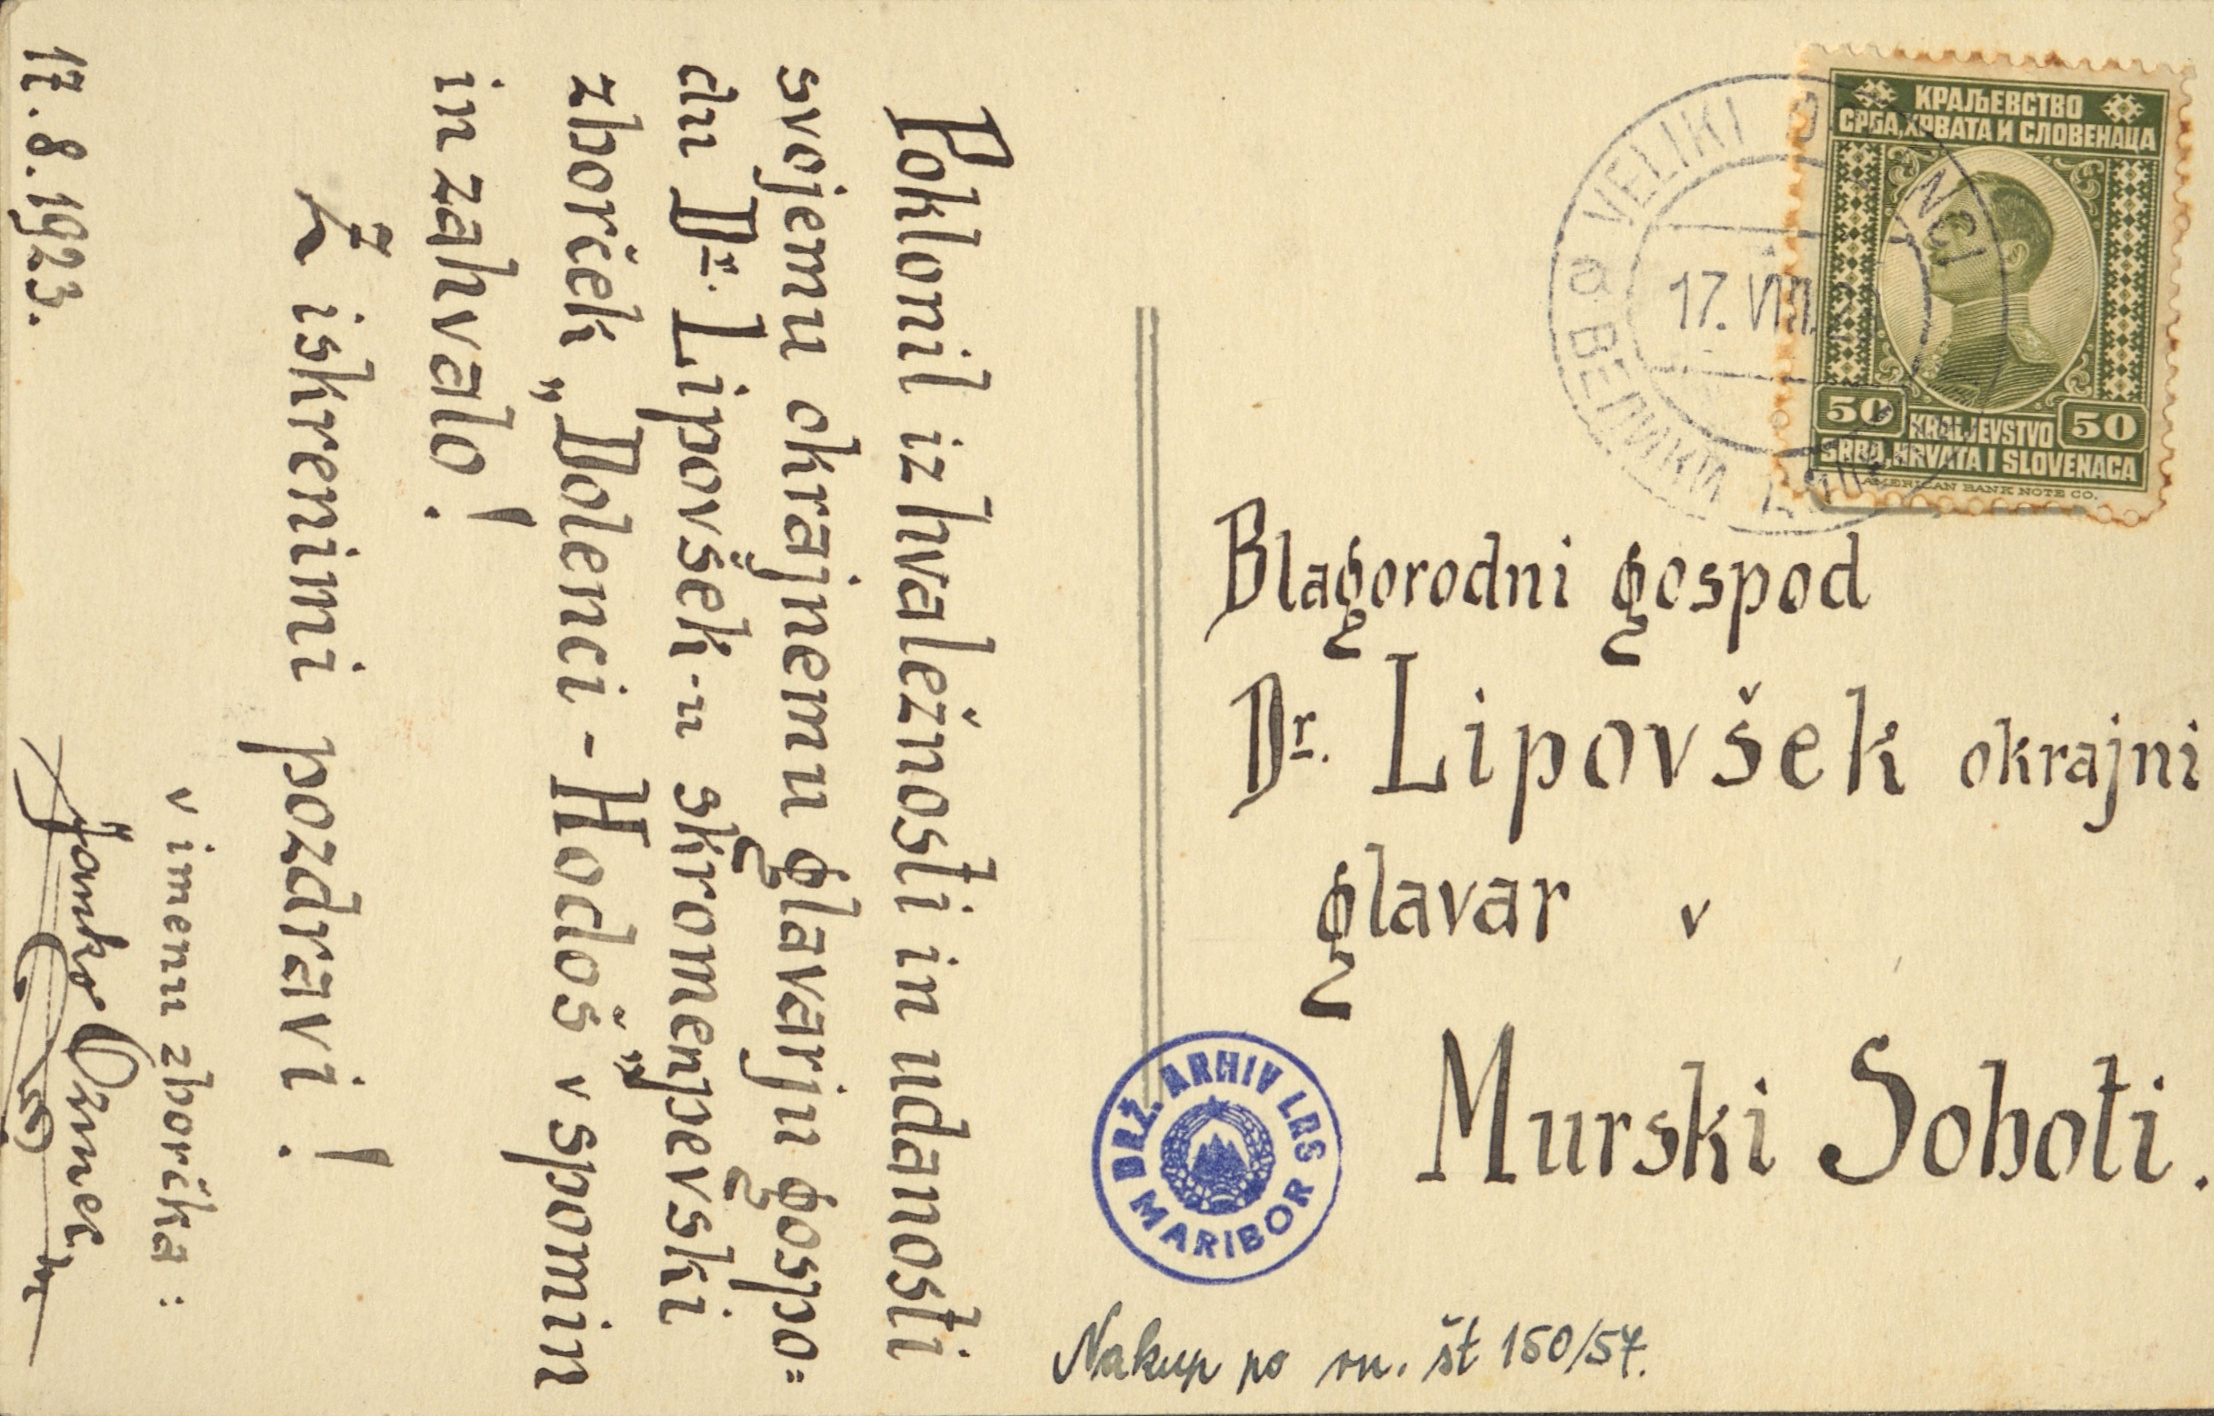 Poklonil iz hvaležnosti in udanosti
svojemu okrajnemu glavarju gospo=
du Dr. Lipovšek-u skromen pevski
zborček „Dolenci - Hodoš” v spomin
in zahvalo!
Z iskrenimi pozdravi!
v imenu zborčka:
17. 8. 1923.
КРАЉЕВСТВО
СРБА, ХРВАТА И СЛОВЕНАЦА
50 50
KRALJEVSTVO
SRBA, HRVATA I SLOVENACA
AMERICAN BANK NOTE CO.
VELIKI
17. VIII.
ВЕЛИКИ
Blagorodni gospod
Dr. Lipovšek okrajni
glavar v
Murski Soboti.
DRŽ. ARHIV LRS
MARIBOR
Nakup po rn. št 150/57.